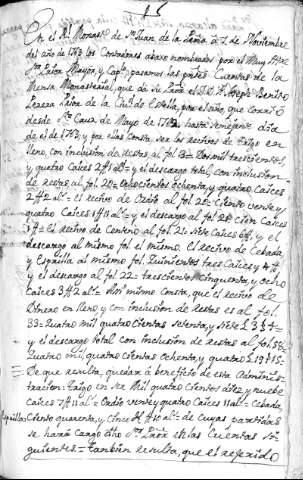 En el Rl. Monasº. de Sn. Juan de la Peña à 7 de Noviembre
del año de 1763 los Contadores abaxo nombrados por el Muy Iltre.
Sr. Prior Mayor, y Capº. pasamos las presentes Cuentas de la
Mensa Monasterial, que dà su Prior el Dr. Dn. Joseph Benito
Lerera Prior de la Ciud. de Estella, por el año, que contò
desde Sta. Cruz de Mayo de 1762 hasta semejante dia
de el de 1763, y por ellas Consta, ser los recivos de Trigo en
lleno, con inclusion de restas al fol. 13 = Dos mil trescientos
y quatro Caices 2 fs. 11 als. = y el descargo total, con inclusion
de restas, al fol. 20 = ochocientos ochenta, y quatro Caices
2 fs. 2 als. = el recivo de Ordio al fol. 20 = Ciento veinte, y
quatro Caices 1 f. 11 als. = y el descargo al fol. 20 Cien Caices
= el Recivo de Centeno al fol. 21 = Siete Caices y el
descargo al mismo fol. el mismo. El recivo de Cebada,
y Espilla al mismo fol. Quinientos tres Caices, y 4 fs.
y el descargo al fol. 22 = trescientos Cinquenta, y ocho
Caices 3 fs. 2 als. = Asi mismo Consta, que el recivo de
Dinero en lleno, y con inclusion de restas es al fol.
33 = Quatro mil quatro Cientas setenta, y siete £ 3 s 4 =
y el descargo total con inclusion de restas al fol. 58
Quatro mil quatro Cientas ochenta, y quatro £ 19 s 15 =
De que resulta, quedar à beneficio de esta Adminis-
tracion: Trigo en ser Mil quatro Cientos diez y nueve
Caices 7 fs. 11 als. = Ordio veinte y quatro Caices 11 als. = Cebada,
Espilla Ciento quarenta, y Cinco de cuyas partidas
se harà Cargo dho. Sr. Prior en las Cuentas si-
guientes = tambien resulta, que el referido